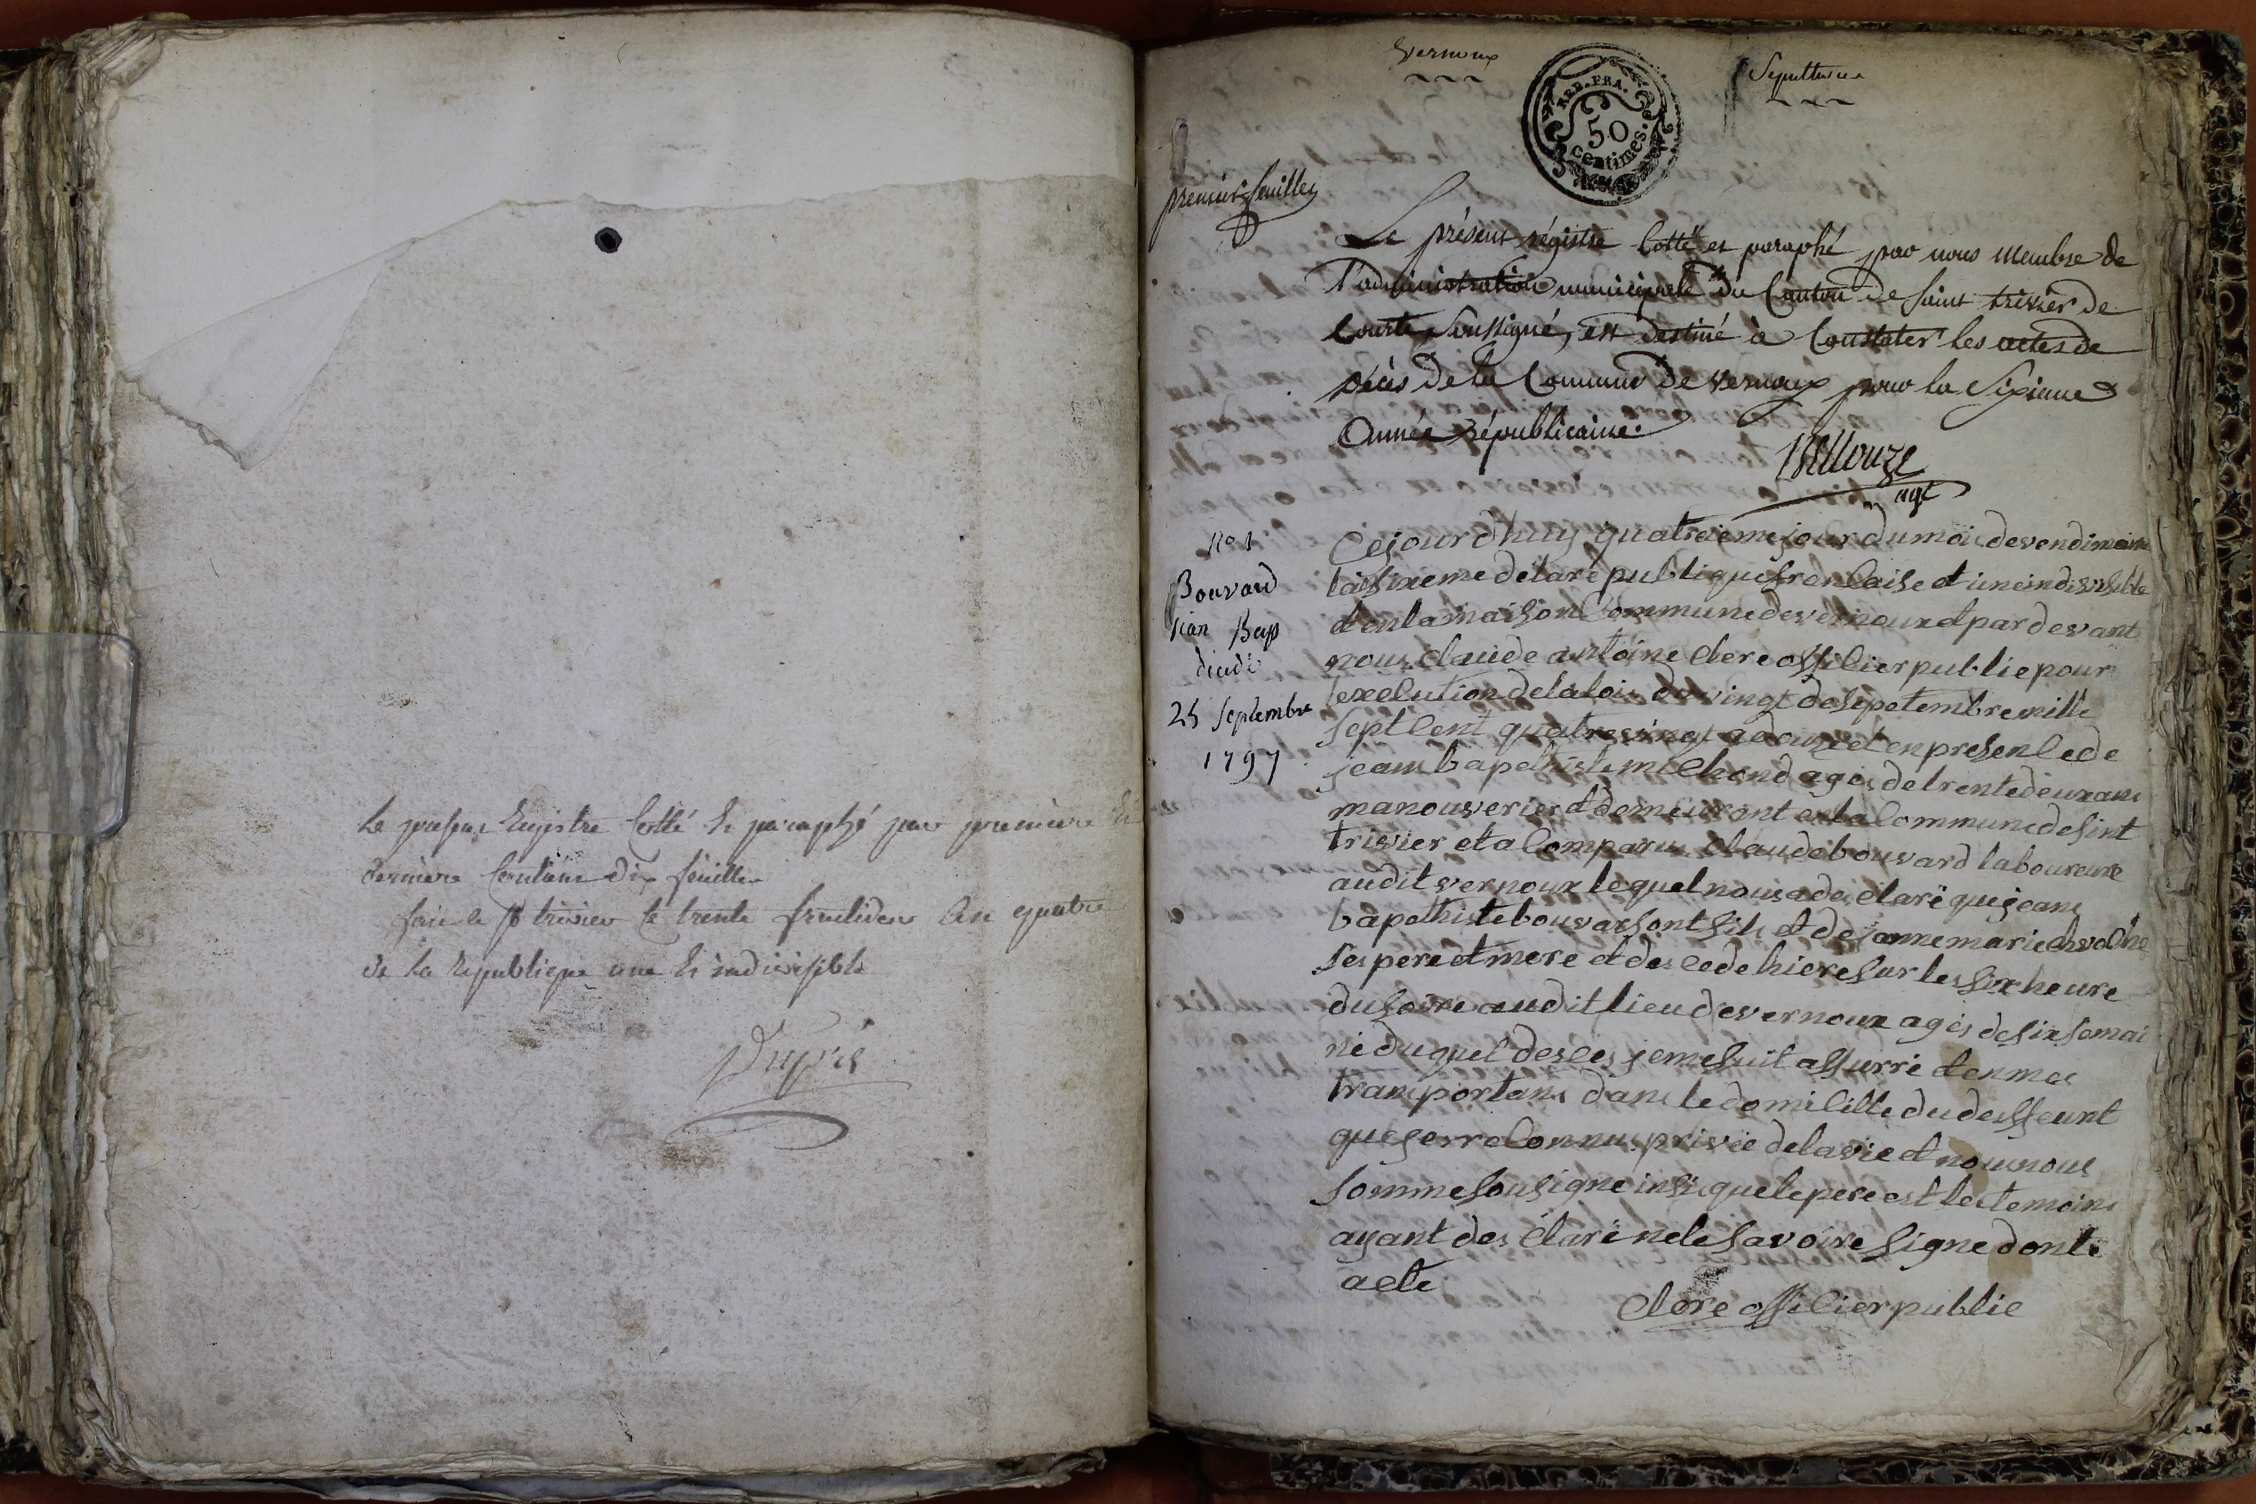 Le present Registre Cotté et paraphé par premiere et
derniere Contient dix feuillets
fait a St trivier le trente fructidor an quatre
de la Republique une et indivisible
Dupré
Vernoux
Sepultures
REP. FRA.
50
centimes.
premier feuillet
Le présent régistre Cotté et paraphé par nous membre de
l'administration municipale du Canton de Saint trivier de
Courte, Soussigné, est destiné à Constater les actes de
décès de la Commune de vernoux pour la Sixieme
Année républicaine.
agt
No 1
Bouvard
jean Bap
25 Septembre
1797
Cejourdhuy quatrieme jour du mois de vendimaire
lan sixeme dela republique franCaise et une indivisible
et en la maison Commune de vernoux et par devant
nous Claude antoine Clere offiCier publie pour
lexeCution dela loix du vingt de sepetembre mille
sept Cent quatre vingt et douze et en presenCe de
jean bapethiste miChond ages de trente deux ans
manouverier et demeurent en la Commune de sint
trivier et a Comparus Claude bouvard laboureure
audit vernoux lequel nous a des Claré que jean
bapethiste bouvar sont fils et de janne marie
ses pere et mere et des Cede hiere sur les six heure
du soire au dit lieu de vernoux ages de six semai
ne duquel desCes je me suit assurré et en me
transportans dans le domiCille du deffeunt
que jerre Connus privée de la vie et nous nous
somme sousigne insi que le pere est les temoins
ayant des Claré ne le savoire signe donte
aCte
Clere offiCier publie